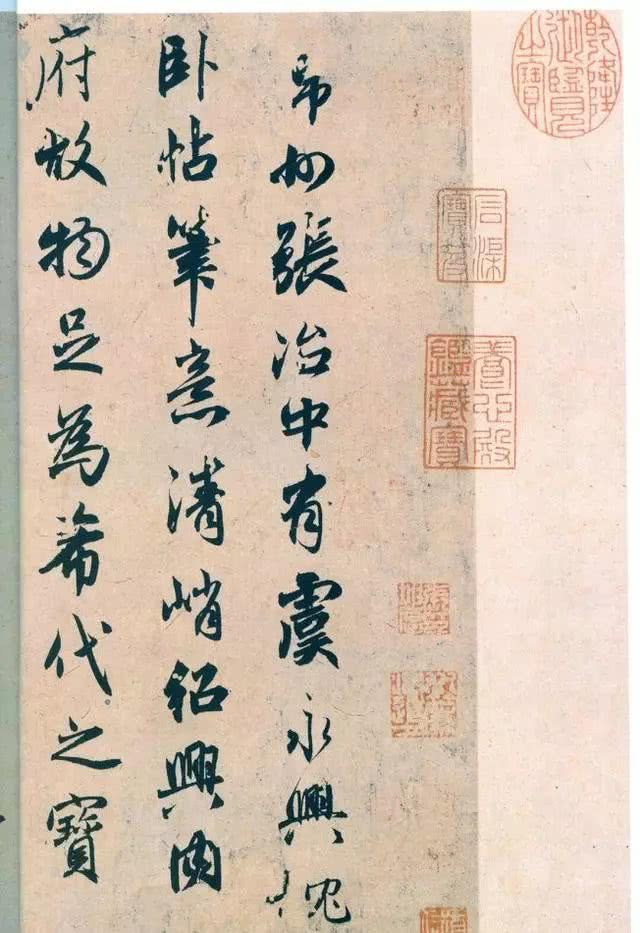 州張治中有虞永興枕
卧帖筆意清峭紹興內
府故物足為希代之寶
乾隆御覽之寶
石渠寶笈
養心殿鑑藏寶